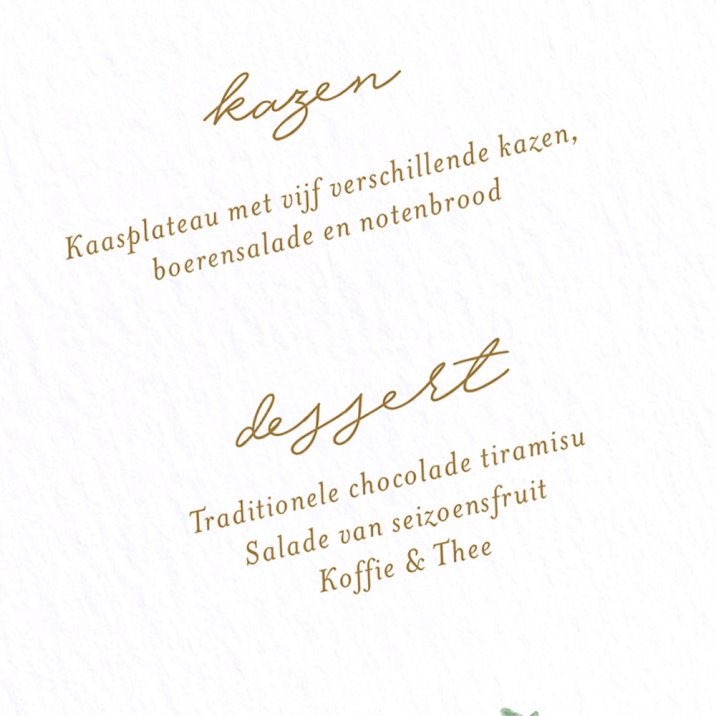 kazen
Kaasplateau met vijf verschillende kazen,
boerensalade en notenbrood
dessert
Traditionele chocolade tiramisu
Salade van seizoensfruit
Koffie & Thee